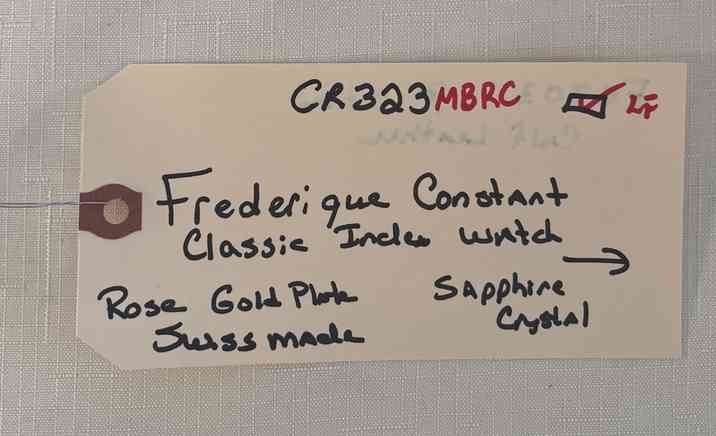 CR323MBRC
Frederique Constant
Classic Index Watch
Rose Gold Plate
Swiss made
Sapphire
Crystal